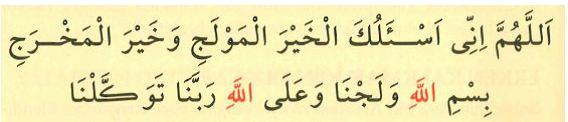 اَللّٰهُمَّ اِنِّى اَسْـَٔلُكَ الْخَيْرَ الْمَوْلَجِ وَخَيْرَ الْمَخْرَجِ
بِسْمِ اللّٰهِ وَلَجْنَا وَعَلَى اللّٰهِ رَبَّنَا تَوَكَّلْنَا